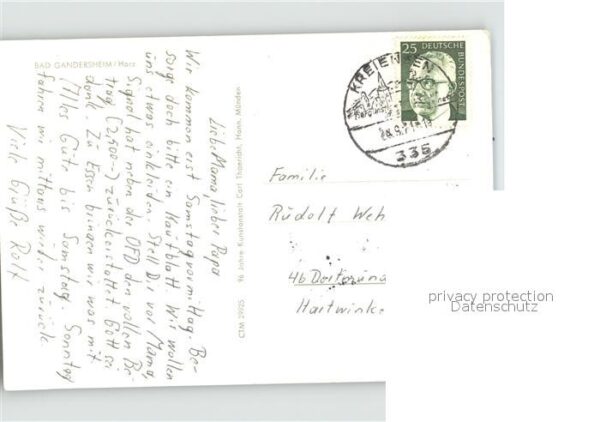 BAD GANDERSHEIM/Harz
Liebe Mama lieber Papa
Wir kommen erst Samstagvormittag. Be-
sorge doch bitte ein Kaufblatt. Wir wollen
uns etwas einkleiden. Stell Dir vor Mama,
Signal hat neben der OFD den vollen Be-
trag (2,900-) zurückerstattet. Gott sei
dank. Zu Essen bringen wir was mit.
Alles Gute bis Samstag. Sonntag
fahren wir mittags wieder zurück
Viele Grüße Rolf
CTM 29025 96 Jahre Kunstanstalt Carl Thoericht, Hann. Münden
25 DEUTSCHE BUNDESPOST
KREIENSEN
335
Familie
Rudolf Weh
46 Dortmund
Hartwinke
privacy protection
Datenschutz